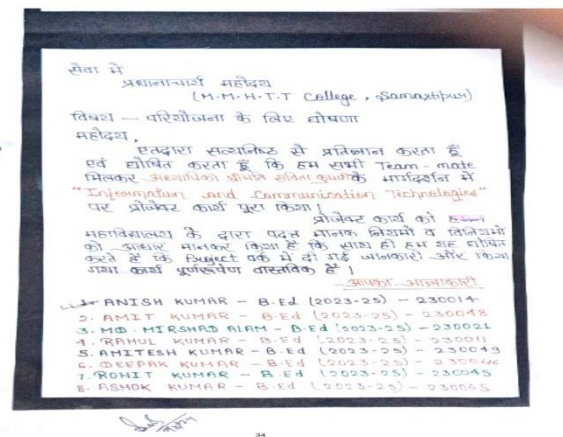 सेवा में
प्रधानाचार्य महोदय
(M.M.H.T.T College, Samastipur)
विषय — परियोजना के लिए घोषणा
महोदय,
एतद्वारा सत्यनिष्ठ से प्रतिज्ञान करता हूँ
एवं घोषित करता हूँ कि हम सभी Team-mate
मिलकर अध्यापिका श्रीमति सविता कुमारी के मार्गदर्शन में
"Information and Communication Technologies"
पर प्रोजेक्ट कार्य पूरा किया।
प्रोजेक्ट कार्य को
महाविद्यालय के द्वारा प्रदत्त मानक नियमों व विनियमों
को आधार मानकर किया है कि साथ ही हम यह घोषित
करते हैं कि Project वर्क में दी गई जानकारी और किया
गया कार्य पूर्णरूपेण वास्तविक है।
आपका आज्ञाकारी
1. ANISH KUMAR - B.Ed (2023-25) - 230014
2. AMIT KUMAR - B.Ed (2023-25) - 230048
3. MD. MIRSHAD ALAM - B.Ed (2023-25) - 230021
4. RAHUL KUMAR - B.Ed (2023-25) - 230011
5. AMITESH KUMAR - B.Ed (2023-25) - 230049
6. DEEPAK KUMAR - B.Ed (2023-25) -
7. ROHIT KUMAR - B.Ed (2023-25) - 230045
8. ASHOK KUMAR - B.Ed (2023-25) - 230065
34